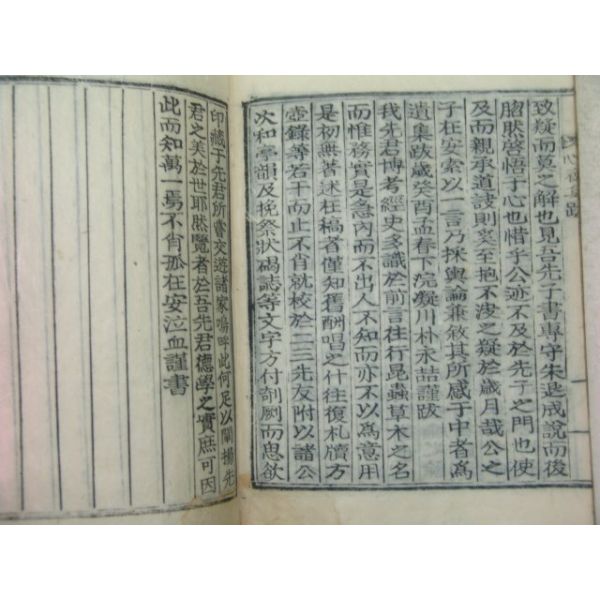 致疑而莫之解也見吾先子書專守朱退成說而後
胎肰啓悟于心也惜乎公迹不及於先子之門也使
及而親承道諛則奚至抱不浚之疑於歲月哉公之
子在安索以一言乃採輿論兼敘其所感于中者爲
遺集跋歲癸酉孟春下浣凝川朴永喆謹跋
我先君博考經史多識於前言往行昆蟲草木之名
而惟務實是急內而不出人不知而亦不以爲意用
是初無著述在稿者僅知舊酬唱之什往復札牘方
壺錄等若干而止不肖就校於二三先友附以諸公
次和亭韻及挽祭狀碣誌等文字方付剞劂而思欲
印藏于先君所嘗交遊諸家嗚呼此何足以闡揚先
君之美於世耶然覽者於吾先君德學之實庶可因
此而知萬一焉不肖孤在安泣血謹書